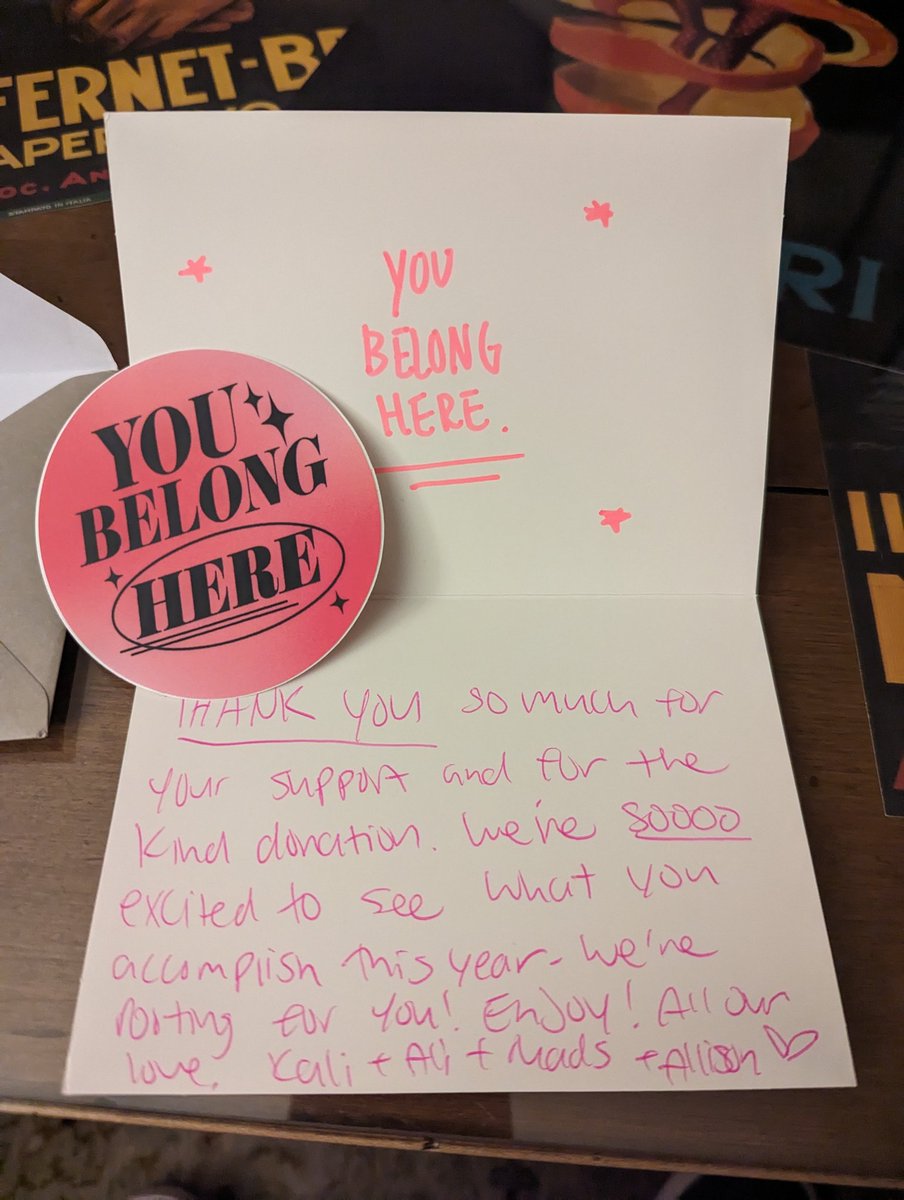 FERNET-B
APER
OC. AN
STAMPATO IN ITALIA
RI
YOU
BELONG
HERE.
YOU
BELONG
HERE
THANK YOU so much for
your support and for the
kind donation. We're soooo
excited to see what you
accomplish this year- we're
rooting for you! Enjoy! All our
love. Kali + Ali + Mads + Allison